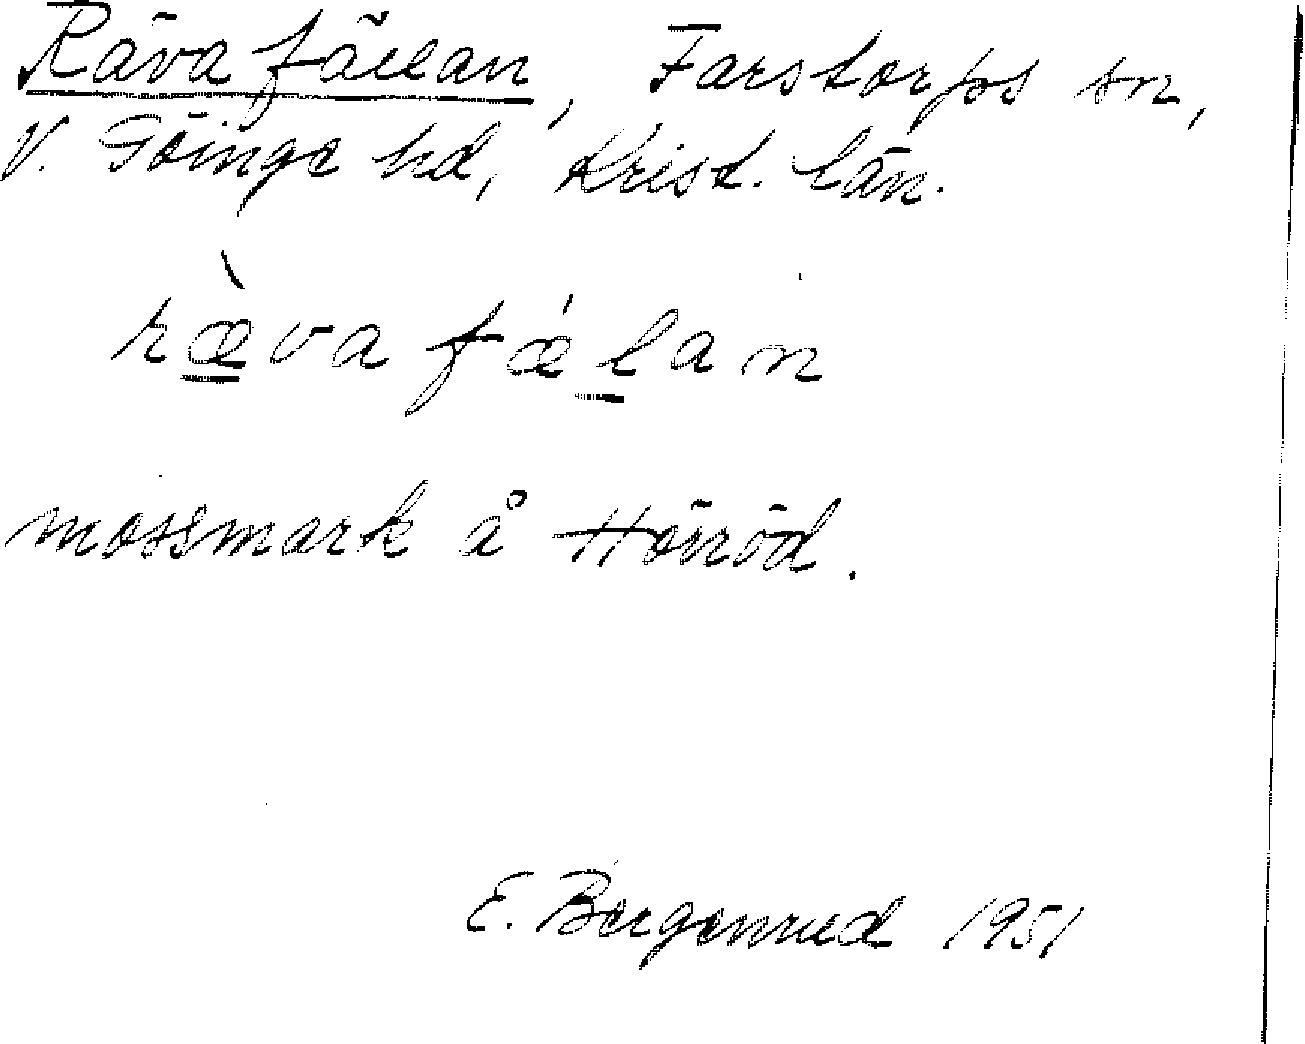 Rävafällan, Farstorps sn,
V. Göinge hd, Krist. län.
ræ̀vafǽlan
mossmark å Hörröd.
E. Bergenrud 1951